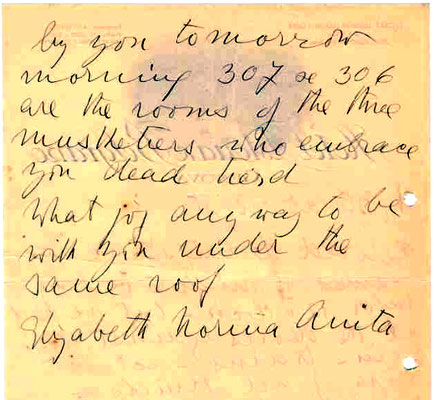 by you tomorrow
morning 307 or 306
are the rooms of the three
musketiers who embrace
you dead hard
what joy any way to be
with you under the
same roof
Elizabeth Norma Anita